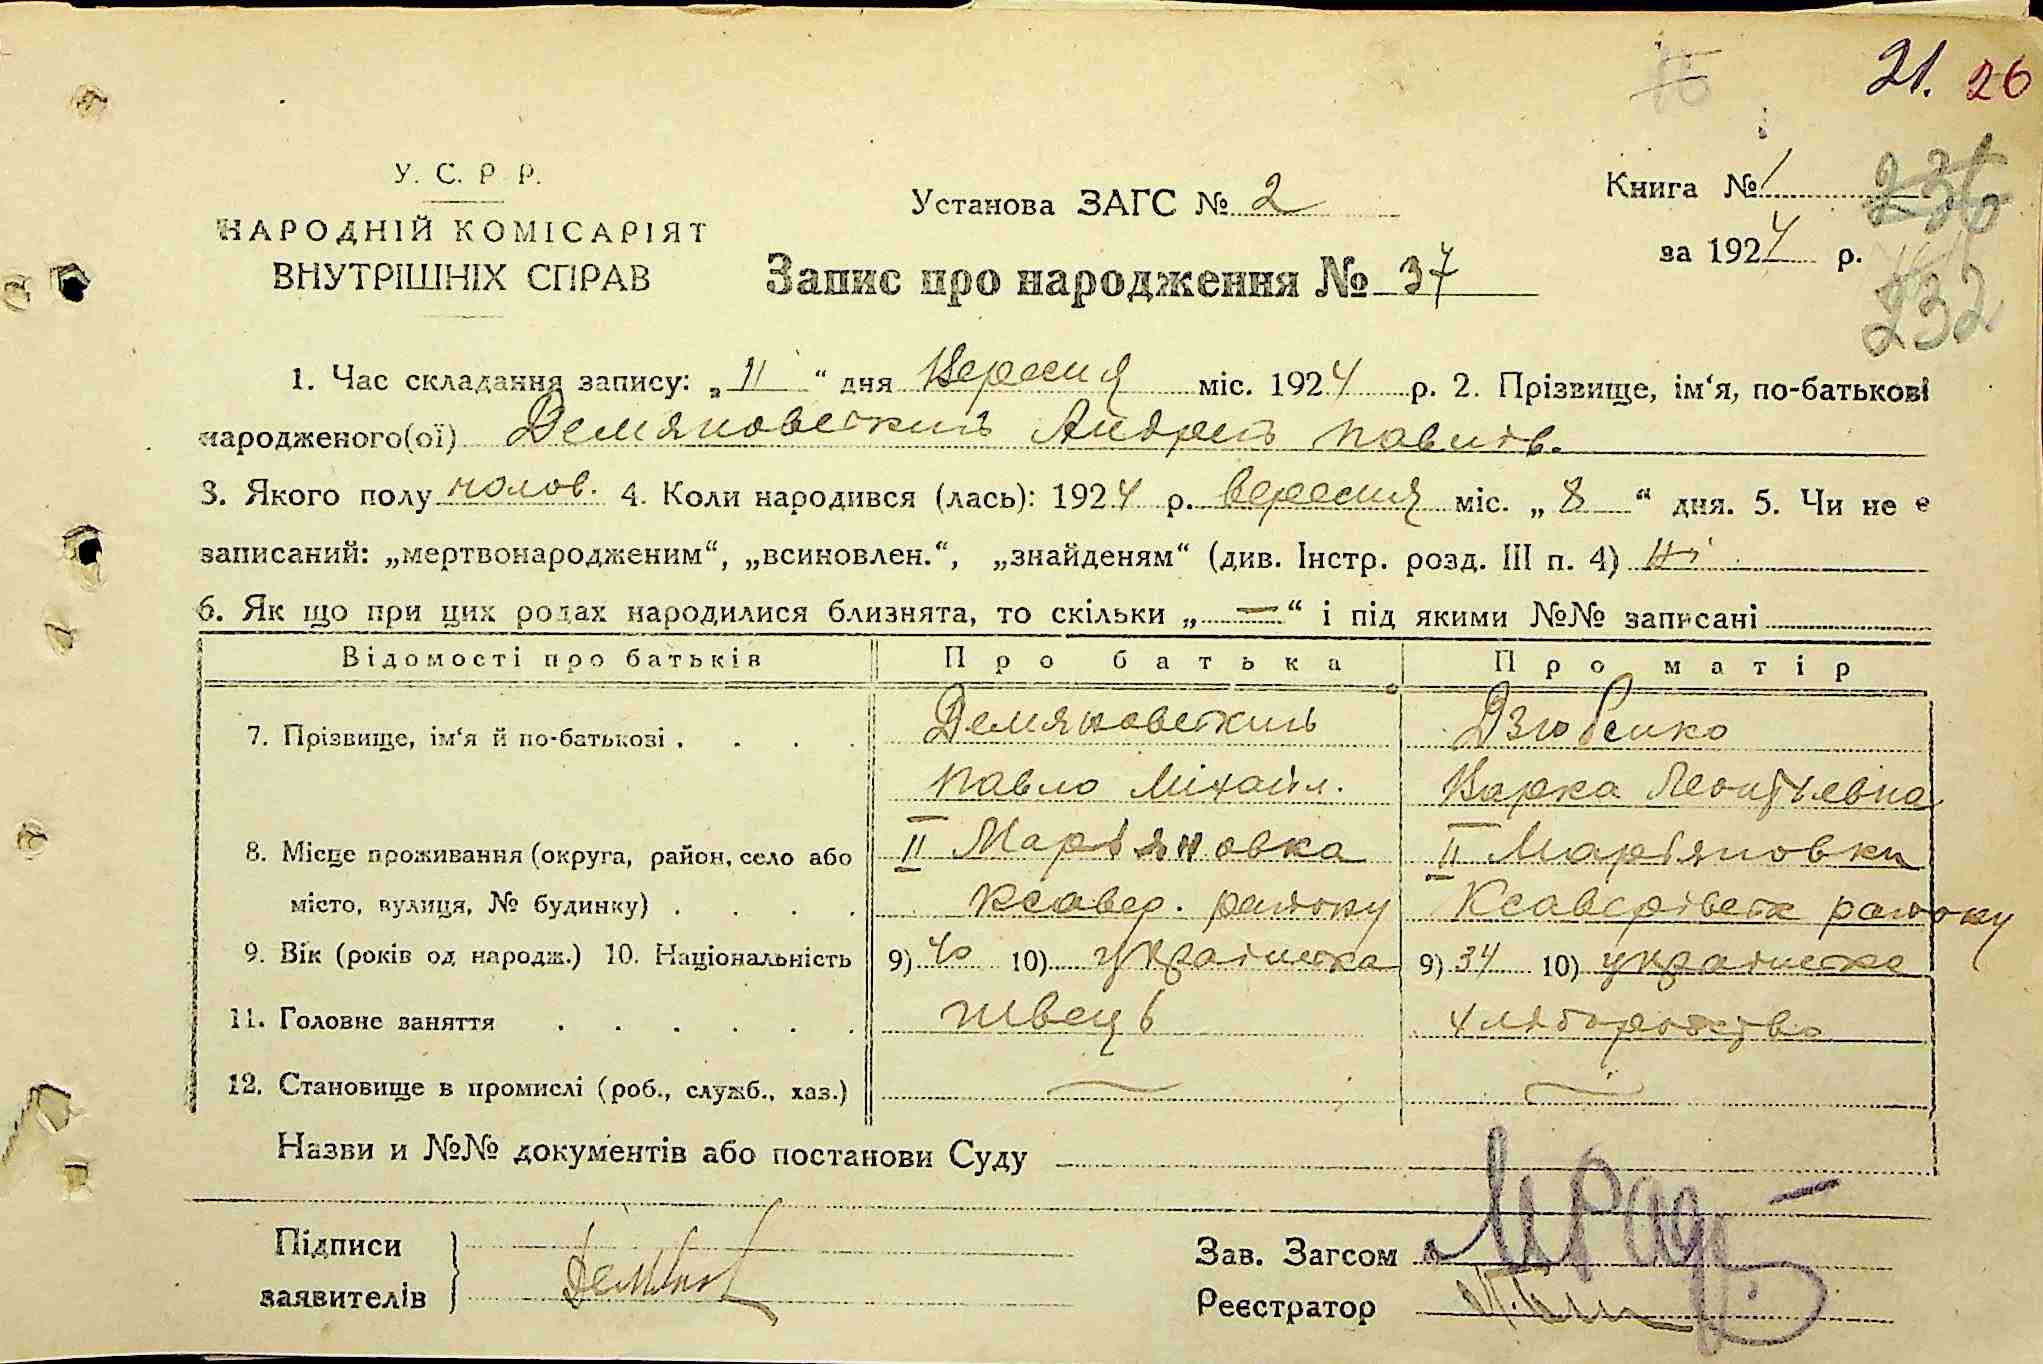 21. 26
У. С. Р. Р.
НАРОДНІЙ КОМІСАРІЯТ
ВНУТРІШНІХ СПРАВ
Установа ЗАГС № 2
Запис про народження № 37
Книга № 1
за 1924 р.
236
232
1. Час складання запису: „ 11 “ дня Вересня міс. 1924 р. 2. Прізвище, ім‘я, по-батькові
народженого(ої) Демяновський Андрей Павлів.
3. Якого полу чолов. 4. Коли народився (лась): 1924 р. вересня міс. „ 8 “ дня. 5. Чи не є
записаний: „мертвонародженим“, „всиновлен.“, „знайденям“ (див. Інстр. розд. III п. 4) Ні
6. Як що при цих родах народилися близнята, то скільки „ — “ і під якими №№ записані
Відомості про батьків Про батька Про матір
7. Прізвище, ім‘я й по-батькові . . . . Демяновский Дзюбенко
Павло Міхайл. Варка Леонтьевна
8. Місце проживання (округа, район, село або II Марʼяновка II Марʼяновки
місто, вулиця, № будинку) . . . . Ксавер. району Ксаверівськ району
9. Вік (років од народж.) 10. Національність 9) 40 10) українська 9) 34 10) українська
11. Головне заняття . . . . . . швець хліборобство
12. Становище в промислі (роб., служб., хаз.) — —
Назви и №№ документів або постанови Суду
Підписи
заявителів
Зав. Загсом
Реєстратор